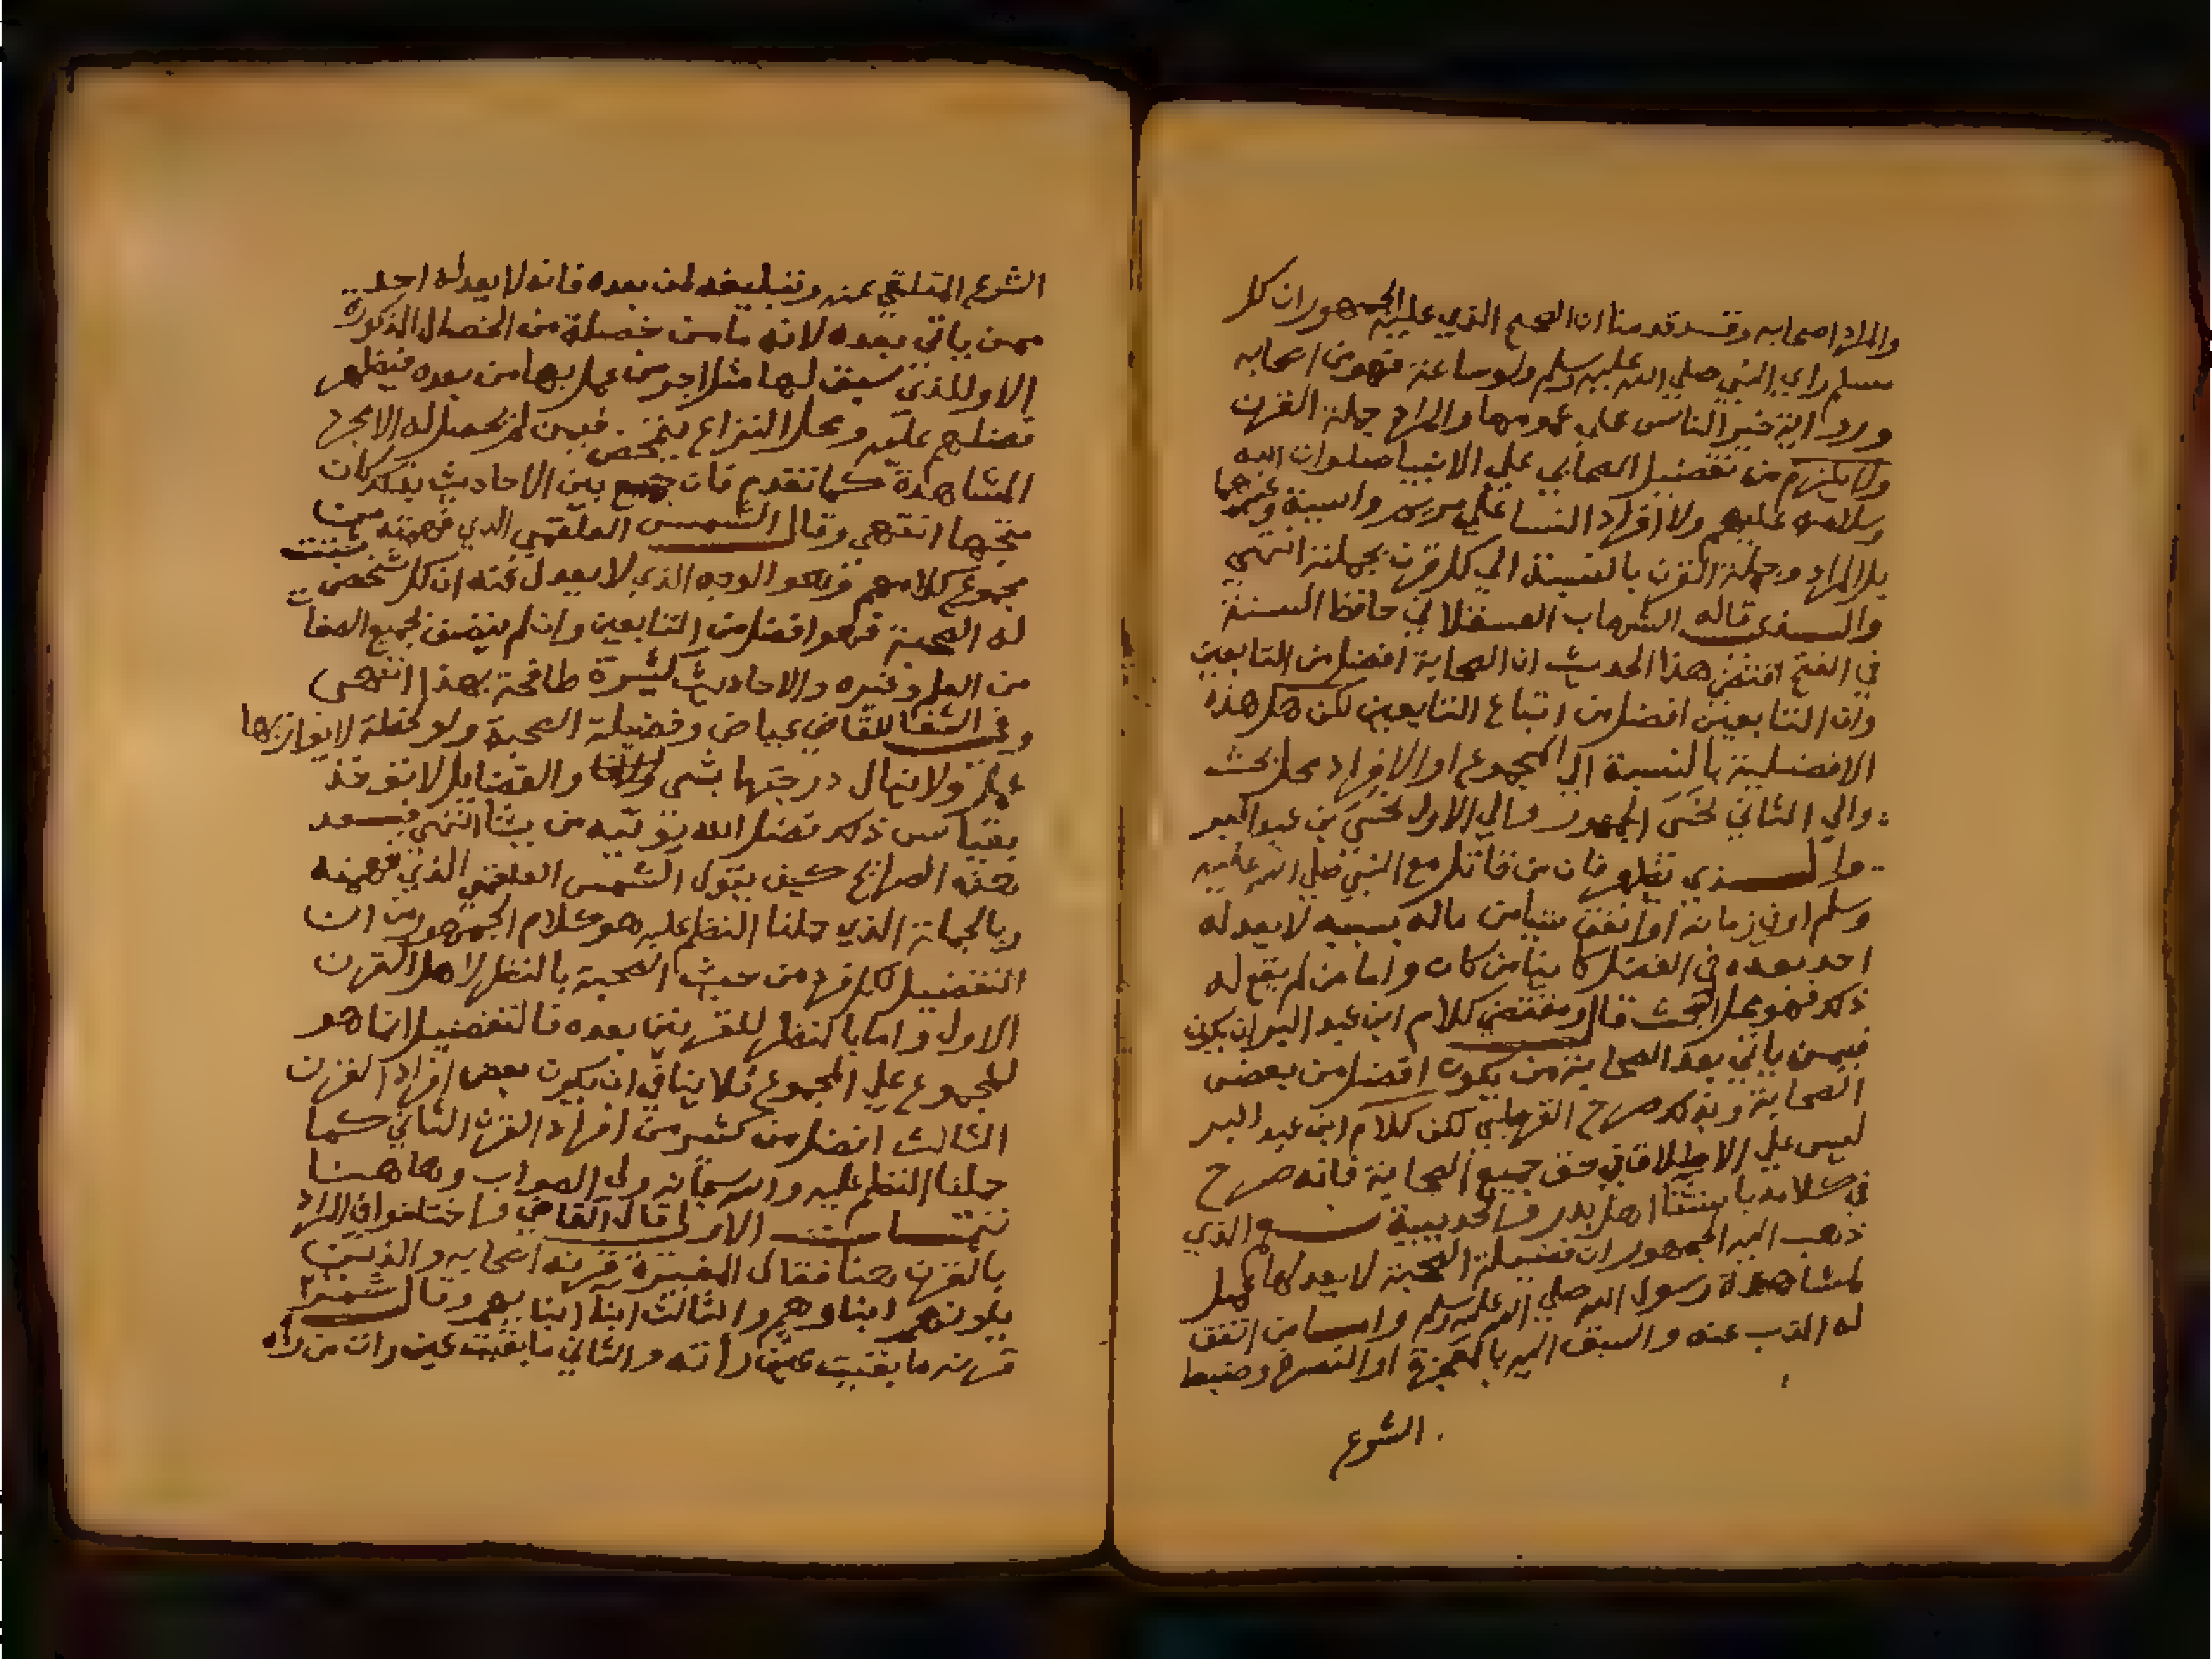 والمراد اصحابه وقد قدمنا ان الصحيح الذي عليه الجمهور ان كل
مسلم راي النبي صلي الله عليه وسلم ولو ساعة فهو من اصحابه
ورواية خير الناس علي عمومها والمراد جملة القرن
ولا يلزم من تفضيل الصحابي علي الانبيا صلوات الله
وسلامه عليهم ولا افراد النسا علي مريم واسية وغيرهما
بل المراد جملة القرن بالنسبة الي كل قرن بجملته انتهي
والذي قاله الشهاب العسقلاني حافظ السنة
في الفتح اقتضي هذا الحديث ان الصحابة افضل من التابعين
وان التابعين افضل من اتباع التابعين لكن هل هذه
الافضلية بالنسبة الي المجموع او الافراد محل بحث
والي الثاني نحي الجمهور والي الاول نحي ابن عبد البر
والذي يظهر فان من قاتل مع النبي صلي الله عليه
وسلم او في زمانه او انفق شيا من ماله بسببه لا يعدله
احد بعده في الفضل كاينا من كان واما من لم يقع له
ذلك فهو محل البحث قال ومقتضي كلام ابن عبد البر ان يكون
فيمن ياتي بعد الصحابة من يكون افضل من بعض
الصحابة وبذلك صرح القرطبي لكن كلام ابن عبد البر
ليس علي الاطلاق في حق جميع الصحابة فانه صرح
في كلامه باستثنا اهل بدر والحديبية نعم والذي
ذهب اليه الجمهور ان فضيلة الصحبة لا يعدلها عمل
لمشاهدة رسول الله صلي الله عليه وسلم واما من اتفق
له الذب عنه والسبق اليه بالهجرة او النصرة وضبط
الشرع
الشرع المتلقي عنه وتبليغه لمن بعده فانه لا يعدله احد
ممن ياتي بعده لانه ما من خصلة من الخصال المذكورة
الا وللذي سبق لها مثل اجر من عمل بها من بعده فيظهر
فضلهم عليه ومحل النزاع يتمحض فيمن لم يحصل له الا مجرد
المشاهدة كما تقدم فان جمع بين الاحاديث بذلك كان
متجها انتهي وقال الشمس العلقمي الذي فهمته من
مجموع كلامهم وهو الوجه الذي لا يعدل عنه ان كل شخص ثبتت
له الصحبة فهو افضل من التابعين وان لم يتصف بجميع الصفات
من العلم وغيره والاحاديث كثيرة طافحة بهذا انتهي
وفي الشفا للقاضي عياض وفضيلة الصحبة ولو لحظة لا يوازيها
عمل ولا ينال درجتها بشي والفضايل لا توخذ
بقياس ذلك فضل الله يوتيه من يشا انتهي فبعد
هذه الصرايح كيف يقول الشمس العلقمي الذي فهمته
وبالجملة الذي حملنا النظم عليه هو كلام الجمهور من ان
التفضيل لكل فرد من حيث الصحبة بالنظر لاهل القرن
الاول واما بالنظر للقرنين بعده فالتفضيل انما هو
للمجموع علي المجموع فلا ينافي ان يكون بعض افراد القرن
الثالث افضل من كثير من افراد القرن الثاني كما
حملنا النظم عليه والله سبحانه ولي الصواب وهاهنا
تتمات الاولي قال القاضي واختلفوا في المراد
بالقرن هنا فقال المغيرة قرنه اصحابه والذين
يلونهم ابناوهم والثالث ابنا ابنايهم وقال شمر
قرنه ما بقيت عين راته والثاني ما بقيت عين رات من راه